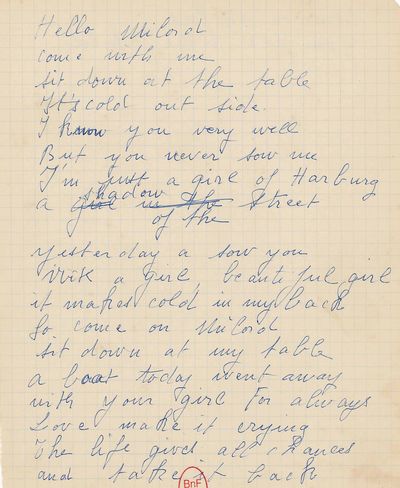 Hello Milord
come with me
sit down at the table
It's cold out side.
I know you very well
But you never sow me
I'm just a girl of Harburg
shadow
a girl in the Street
of the
yesterday a sow you
With a gurl, beauteful girl
it makes cold in my back
So come on Milord
sit down at my table
a boat today went away
with your girl for always
Love make it crying
the life gives all chances
and take it back
BnF